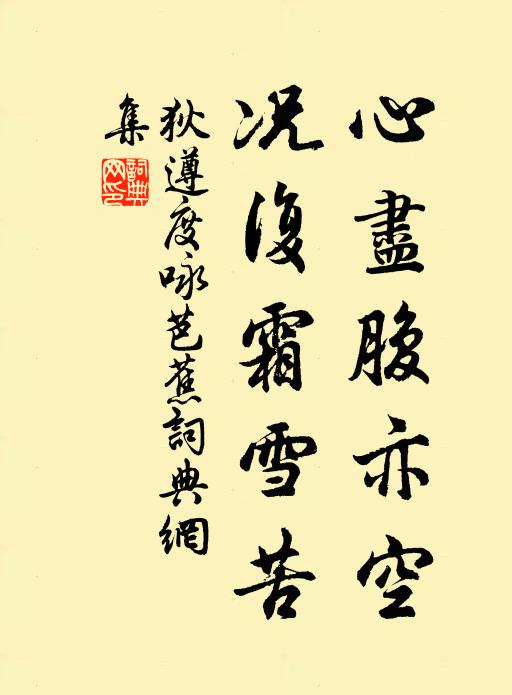 心盡腹亦空
况復霜雪苦
狄遵度咏芭蕉詞典網
集
詞典網印